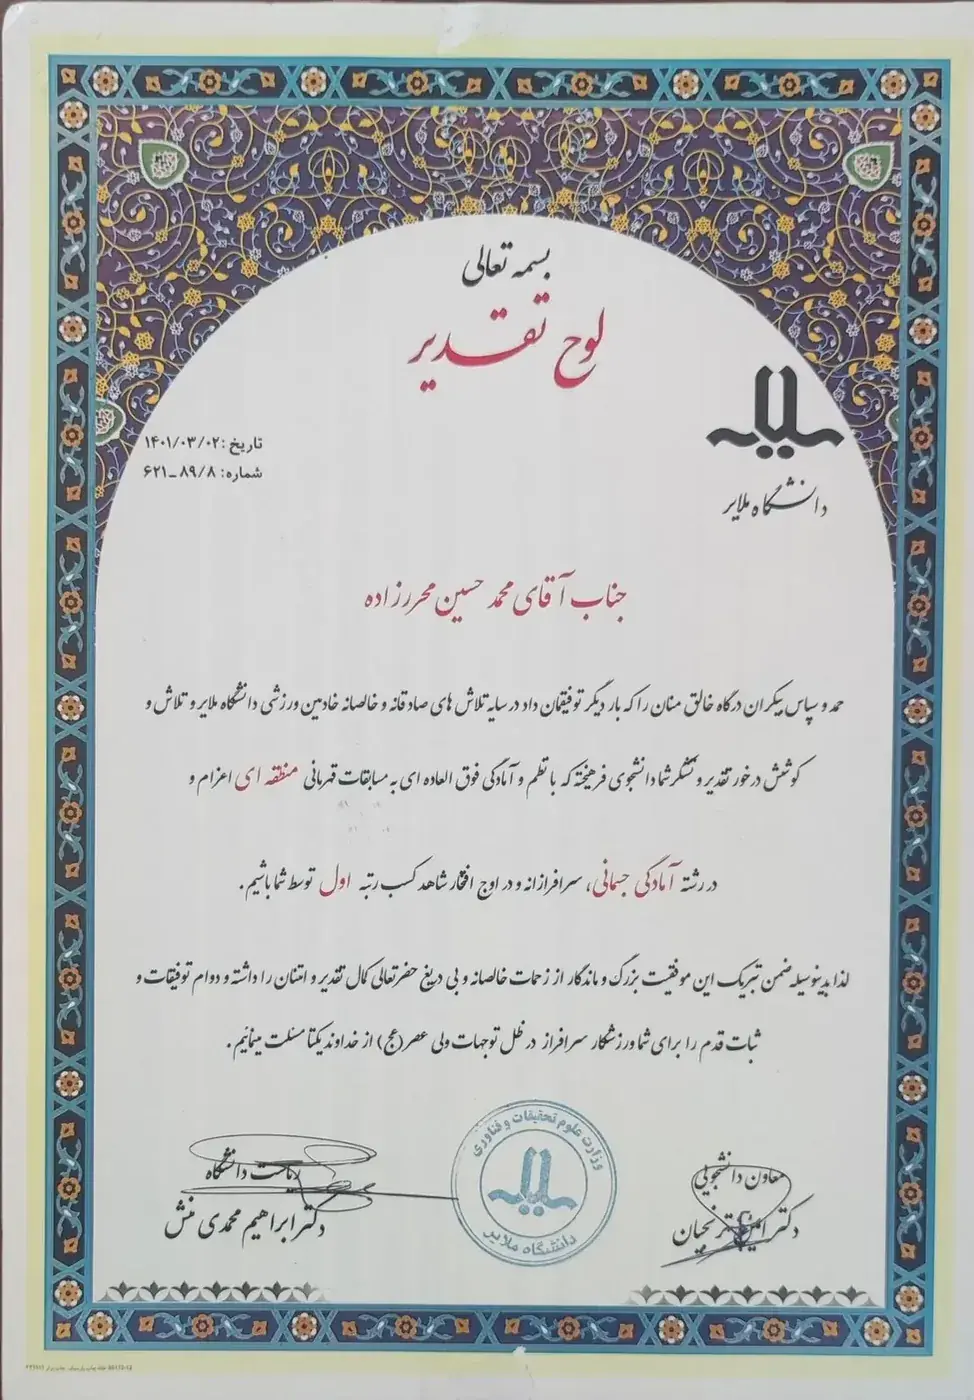 بسمه تعالی
لوح تقدیر
دانشگاه ملایر
تاریخ: ۱۴۰۱/۰۳/۰۲
شماره: ۸۹/۸ ـ ۶۲۱
جناب آقای محمد حسین محررزاده
حمد و سپاس بیکران درگاه خالق منان را که بار دیگر توفیقمان داد در سایه تلاش های صادقانه و خالصانه خادمین ورزشی دانشگاه ملایر و تلاش و
کوشش درخور تقدیر و تشکر شما دانشجوی فرهیخته که با نظم و آمادگی فوق العاده ای به مسابقات قهرمانی منطقه ای اعزام و
در رشته آمادگی جسمانی، سرافرازانه و در اوج افتخار شاهد کسب رتبه اول توسط شما باشیم.
لذا بدینوسیله ضمن تبریک این موفقیت بزرگ و ماندگار از زحمات خالصانه و بی دریغ حضرتعالی کمال تقدیر و امتنان را داشته و دوام توفیقات و
ثبات قدم را برای شما ورزشکار سرافراز در ظل توجهات ولی عصر (عج) از خداوند یکتا مسئلت مینمائیم.
معاون دانشجویی
دکتر
ریاست دانشگاه
دکتر ابراهیم محمدی منش
وزارت علوم تحقیقات و فناوری
دانشگاه ملایر